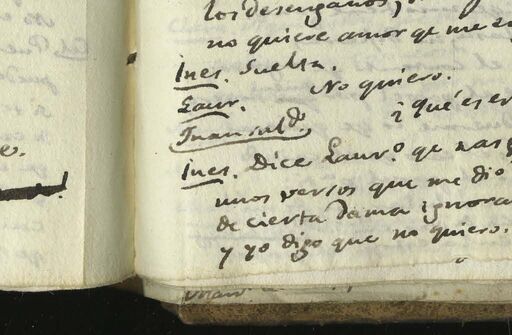 los desengaños,
no quiere amor qe me
Ines. Suelta.
Laur. No quiero.
Juan sal.do ¿ Qué es
Ines. Dice Laur.o qe
unos versos que me dio
de cierta Dama ignora
y yo digo que no quiero.